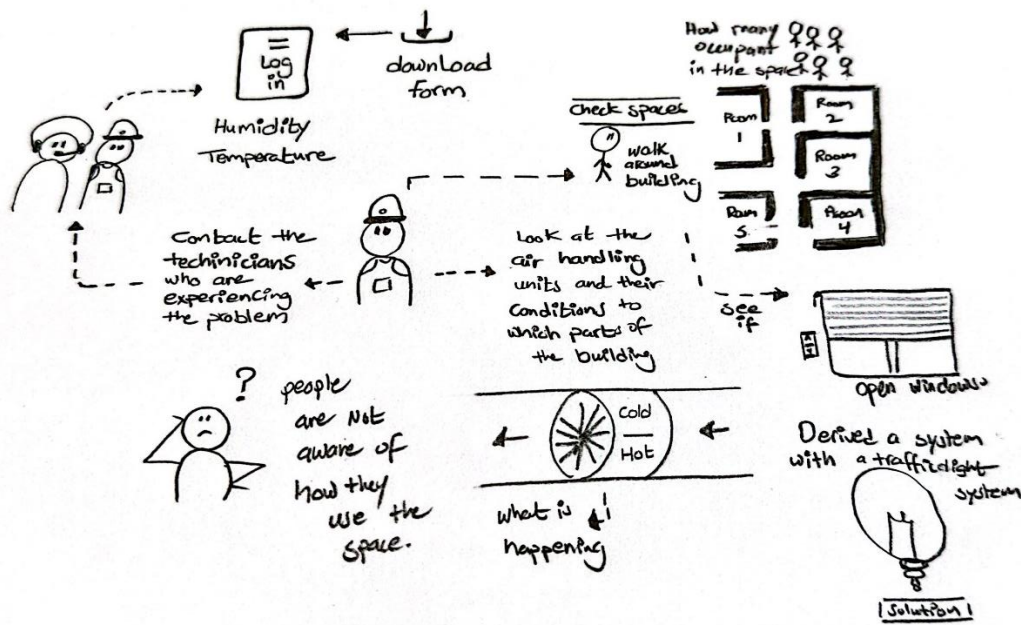 Log
in
download
form
Humidity
Temperature
How many
occupant
in the space
Check spaces
walk
around
building
Room
1
Room
2
Room
3
Room
4
Room
5
Contact the
techinicians
who are
experiencing
the problem
Look at the
air handling
units and their
conditions to
which parts of
the building
see
if
open windows
?
people
are Not
aware of
how they
use the
space.
Cold
Hot
what is
happening
Derived a system
with a trafficlight
system
Solution